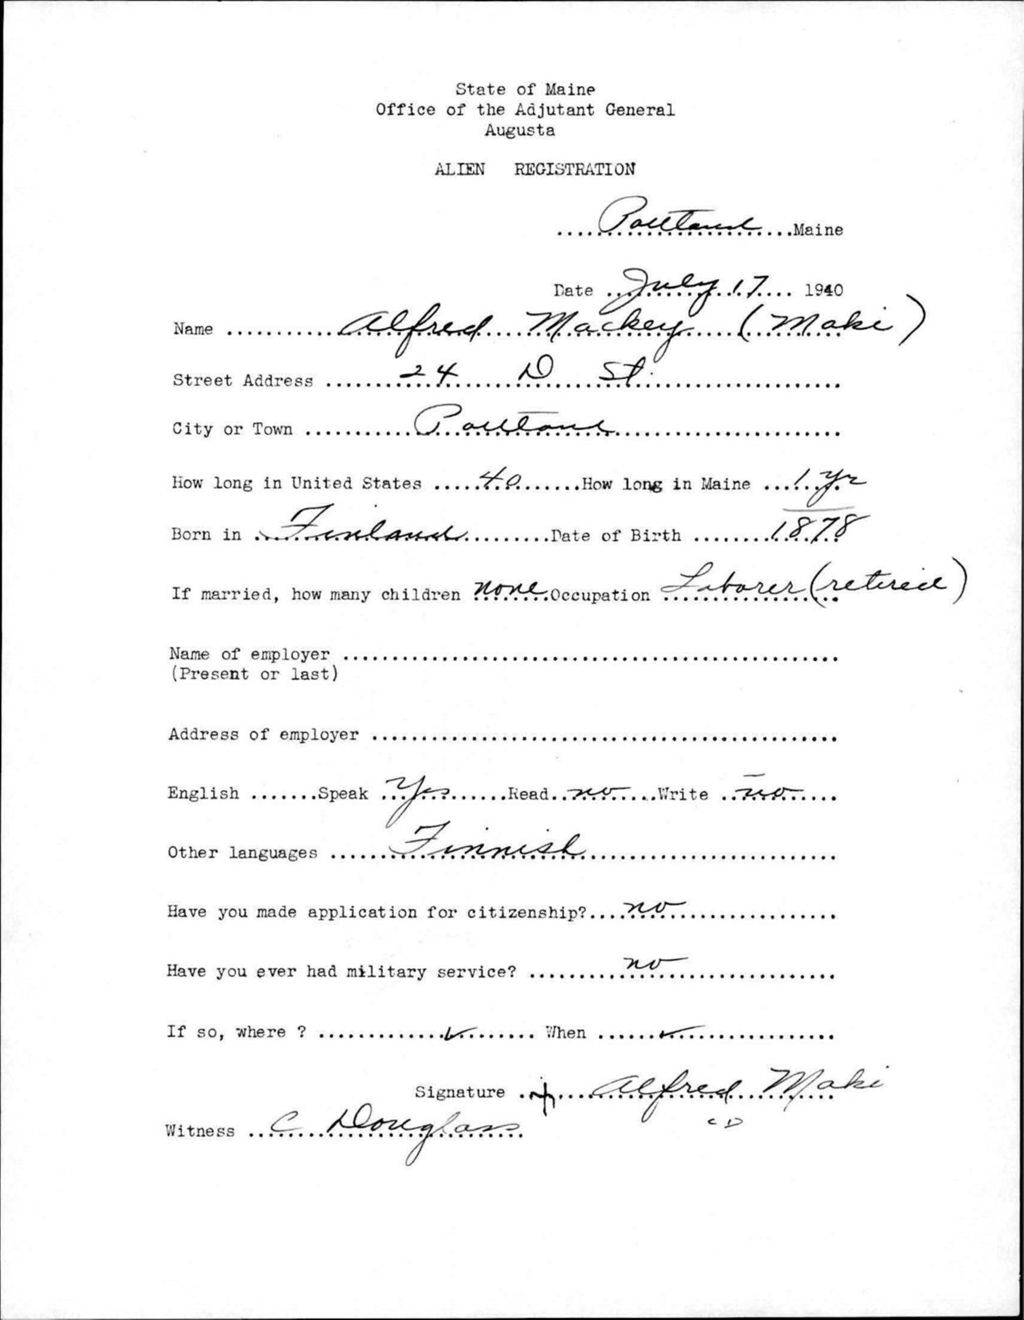 State of Maine
Office of the Adjutant General
Augusta
ALIEN REGISTRATION
....Portland....Maine
Date ...July 17.... 1940
Name ...........Alfred Mackey (Maki)
Street Address ........24 D St.....................
City or Town ...........Portland.......................
How long in United States .....40.......How long in Maine ...1 yr
Born in ..Finland.........Date of Birth ........1878
If married, how many children none.Occupation Laborer (retired)
Name of employer ..................................................
(Present or last)
Address of employer ...............................................
English .......Speak ..Yes......Read..no.....Write ..no.....
Other languages ......Finnish..........................
Have you made application for citizenship?...no................
Have you ever had military service? .........no...............
If so, where ? .............✓........ When ......✓..............
Signature .+....Alfred Maki
C D
Witness ..C Douglass